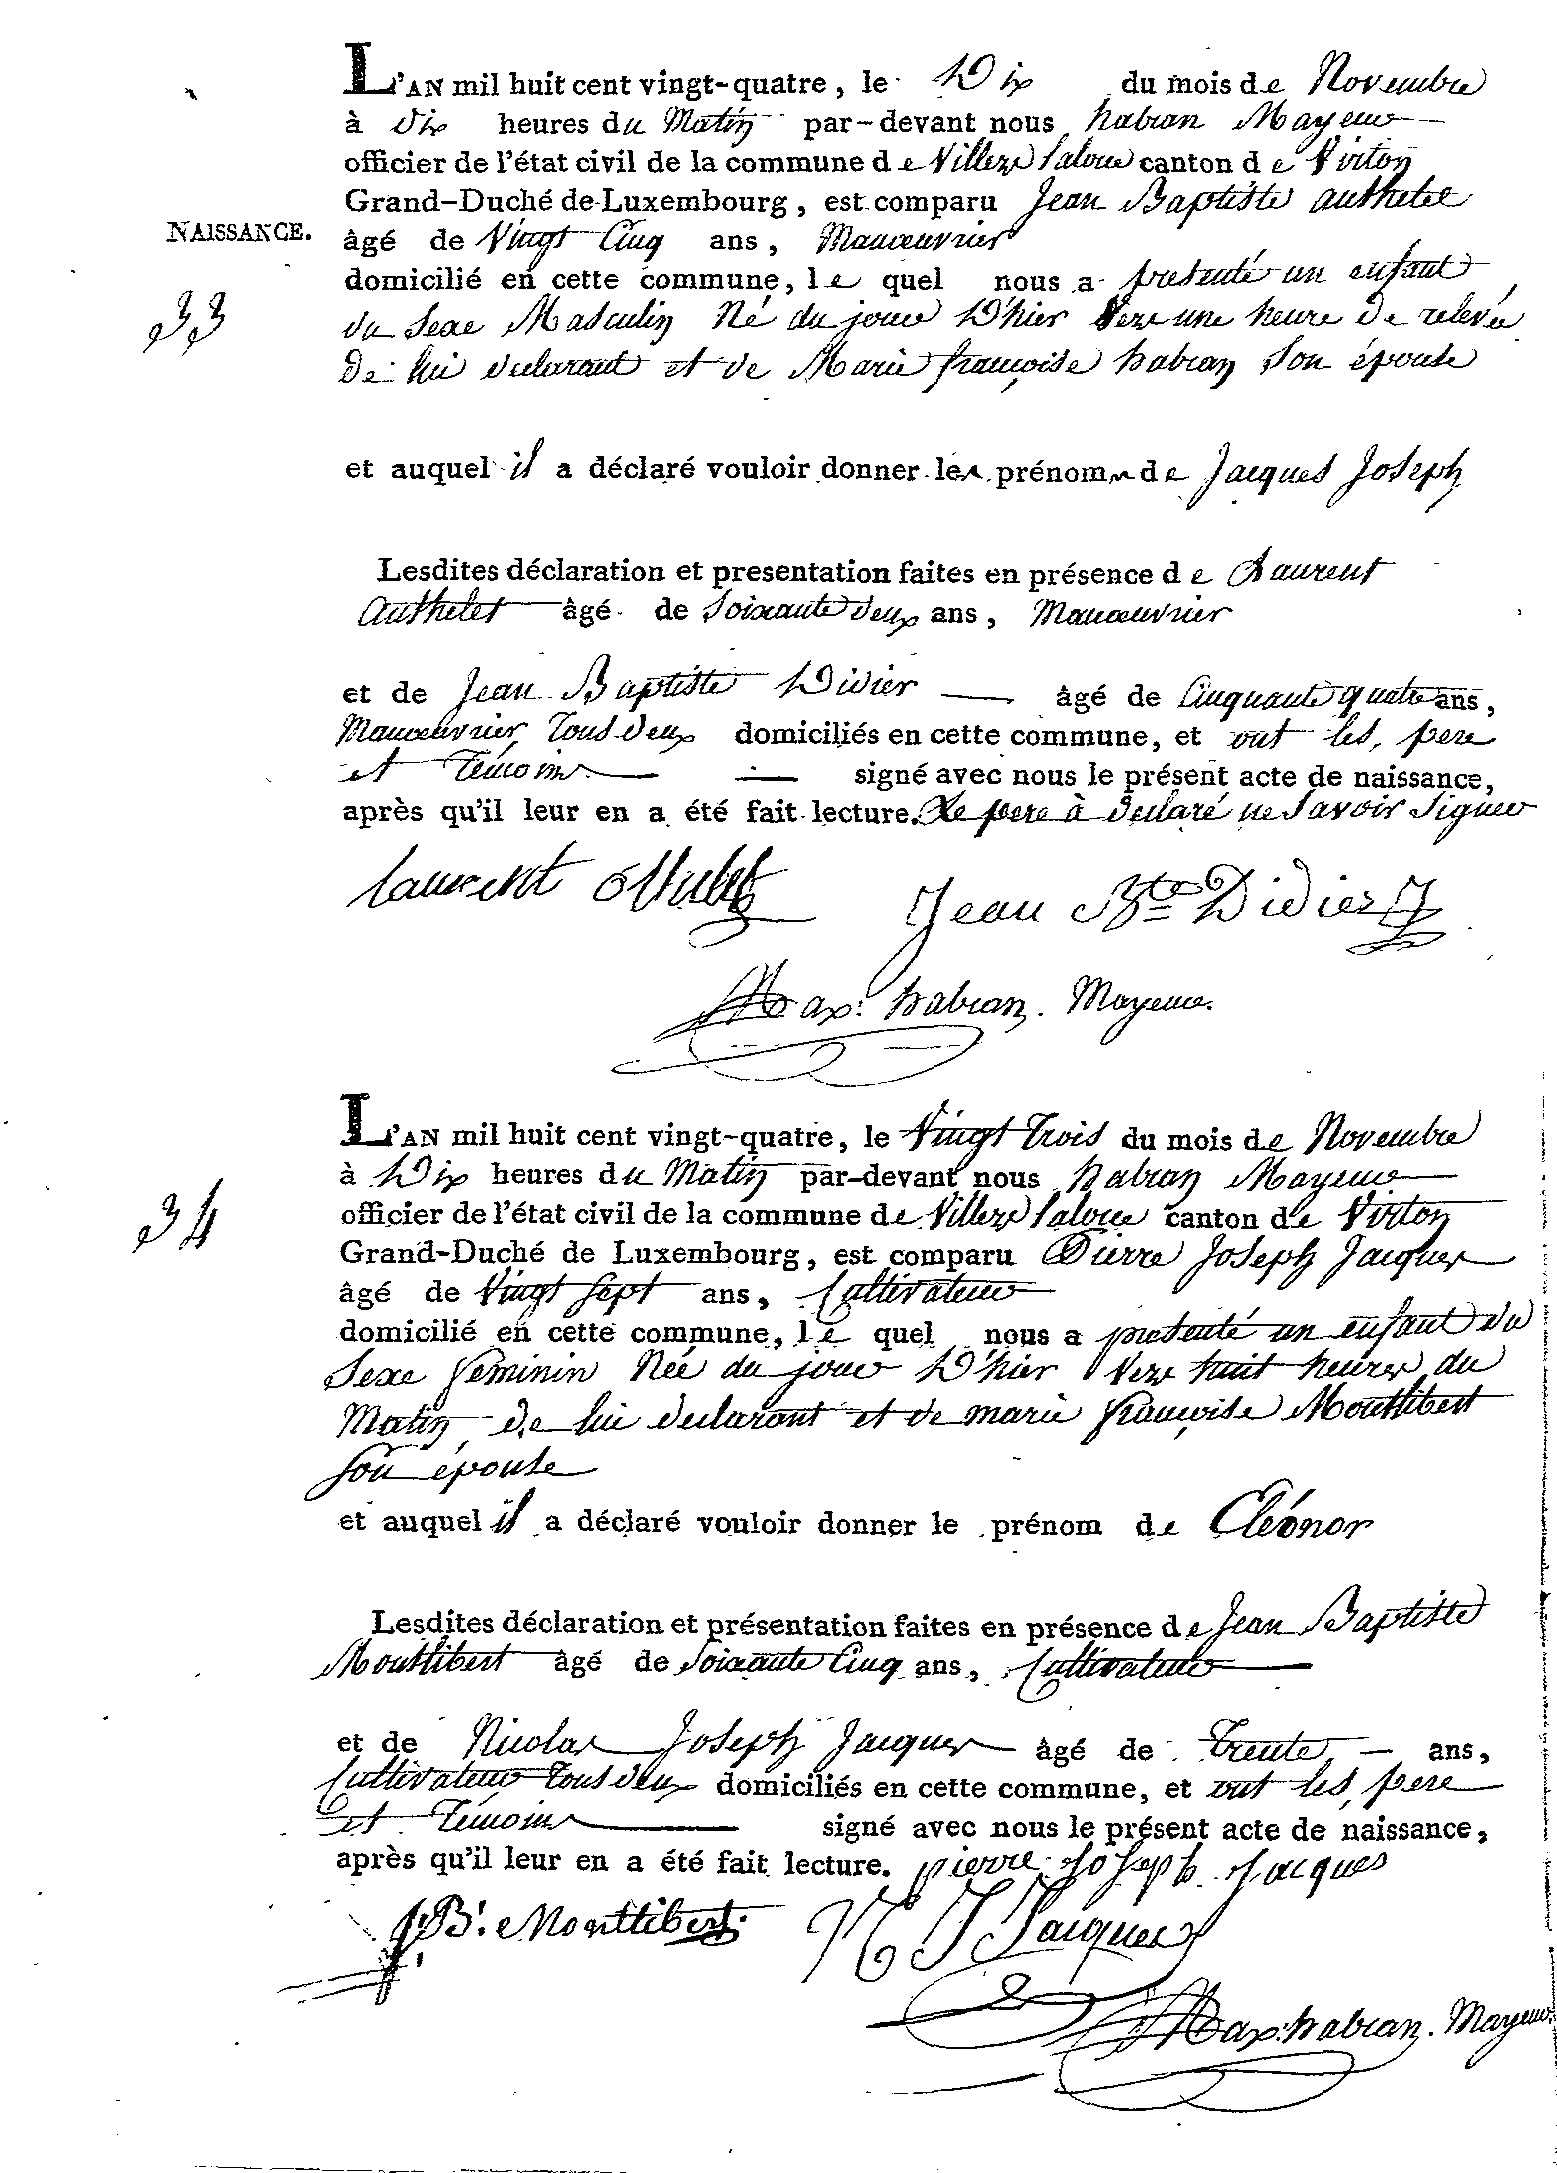 L'AN mil huit cent vingt-quatre, le Dix du mois de Novembre
à Dix heures du Matin par-devant nous habran Mayeur
officier de l'état civil de la commune de Villers laloue canton de Virton
Grand-Duché de Luxembourg, est comparu Jean Baptiste authelet
NAISSANCE. âgé de Vingt Cinq ans, Manœuvrier
domicilié en cette commune, le quel nous a presenté un enfant
33 du sexe Masculin Né du jour D'hier Vers une heure de relevée
De lui declarant et de Marie françoise habran son épouse
et auquel il a déclaré vouloir donner les prénoms de Jacques Joseph
Lesdites déclaration et presentation faites en présence de Laurent
authelet âgé de Soixante deux ans, Manœuvrier
et de Jean Baptiste Didier âgé de Cinquante quatre ans,
Manœuvrier Tous deux domiciliés en cette commune, et ont les, pere
et Témoins signé avec nous le présent acte de naissance,
après qu'il leur en a été fait lecture. Le pere à declaré ne savoir signer
laurent Jean Bte Didier
Max: habran. Mayeur.
L'AN mil huit cent vingt-quatre, le Vingt Trois du mois de Novembre
à Dix heures du Matin par-devant nous habran Mayeur
34 officier de l'état civil de la commune de Villers laloue canton de Virton
Grand-Duché de Luxembourg, est comparu Pierre Joseph Jacques
âgé de Vingt sept ans, Cultivateur
domicilié en cette commune, le quel nous a presenté un enfant du
Sexe feminin Née du jour D'hier Vers huit heures du
Matin de lui declarant et de marie françoise Monttibert
son épouse
et auquel il a déclaré vouloir donner le prénom de Cléonor
Lesdites déclaration et présentation faites en présence de Jean Baptiste
Monttibert âgé de Soixante Cinq ans, Cultivateur
et de Nicolas Joseph Jacques âgé de Trente ans,
Cultivateur Tous deux domiciliés en cette commune, et ont les, pere
et Témoins signé avec nous le présent acte de naissance,
après qu'il leur en a été fait lecture. pierre Joseph Jacques
J: B: Monttibert. N J Jacques
Max: habran. Mayeur.